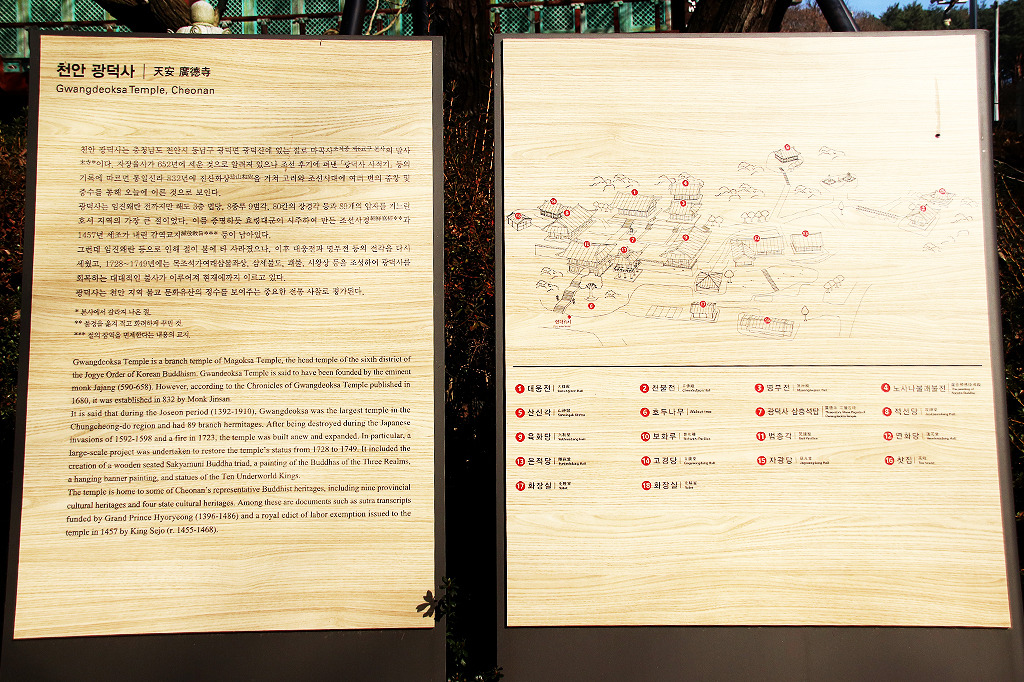 천안 광덕사 | 天安 廣德寺
Gwangdeoksa Temple, Cheonan
천안 광덕사는 충청남도 천안시 동남구 광덕면 광덕산에 있는 절로 마곡사의 말사
***이다. 자장율사가 652년에 세운 것으로 알려져 있으나 조선 후기에 펴낸 「광덕사 사적기」 등의
기록에 따르면 통일신라 832년에 진산화상을 거쳐 고려와 조선시대에 여러 번의 중창 및
중수를 통해 오늘에 이른 것으로 보인다.
광덕사는 임진왜란 전까지만 해도 3층 법당, 8종루 9범각, 80칸의 장경각 등과 89개의 암자를 거느린
호서 지역의 가장 큰 절이었다. 이를 증명하듯 효령대군이 시주하여 만든 조선사경**과
1457년 세조가 내린 감역교지*** 등이 남아있다.
그런데 임진왜란 등으로 인해 절이 불에 타 사라졌으나, 이후 대웅전과 명부전 등의 전각을 다시
세웠고, 1728~1749년에는 목조석가여래삼불좌상, 삼세불도, 괘불, 시왕상 등을 조성하여 광덕사를
회복하는 대대적인 불사가 이루어져 현재에까지 이르고 있다.
광덕사는 천안 지역 불교 문화유산의 정수를 보여주는 중요한 전통 사찰로 평가된다.
* 본사에서 갈라져 나온 절.
** 불경을 옮겨 적고 화려하게 꾸민 것.
*** 절의 잡역을 면제한다는 내용의 교지.
Gwangdeoksa Temple is a branch temple of Magoksa Temple, the head temple of the sixth district of
the Jogye Order of Korean Buddhism. Gwandeoksa Temple is said to have been founded by the eminent
monk Jajang (590-658). However, according to the Chronicles of Gwangdeoksa Temple published in
1680, it was established in 832 by Monk Jinsan.
It is said that during the Joseon period (1392-1910), Gwangdeoksa was the largest temple in the
Chungcheong-do region and had 89 branch hermitages. After being destroyed during the Japanese
invasions of 1592-1598 and a fire in 1723, the temple was built anew and expanded. In particular, a
large-scale project was undertaken to restore the temple's status from 1728 to 1749. It included the
creation of a wooden seated Sakyamuni Buddha triad, a painting of the Buddhas of the Three Realms,
a hanging banner painting, and statues of the Ten Underworld Kings.
The temple is home to some of Cheonan's representative Buddhist heritages, including nine provincial
cultural heritages and four state cultural heritages. Among these are documents such as sutra transcripts
funded by Grand Prince Hyoryeong (1396-1486) and a royal edict of labor exemption issued to the
temple in 1457 by King Sejo (r. 1455-1468).
1 대웅전 2 천불전 3 명부전 4 노사나불괘불전
5 산신각 6 호두나무 Walnut tree 7 광덕사 삼층석탑 8 적선당
9 육화당 10 보화루 11 범종각 12 연화당
13 운적당 14 고경당 15 자광당 16 찻집
17 화장실 18 화장실